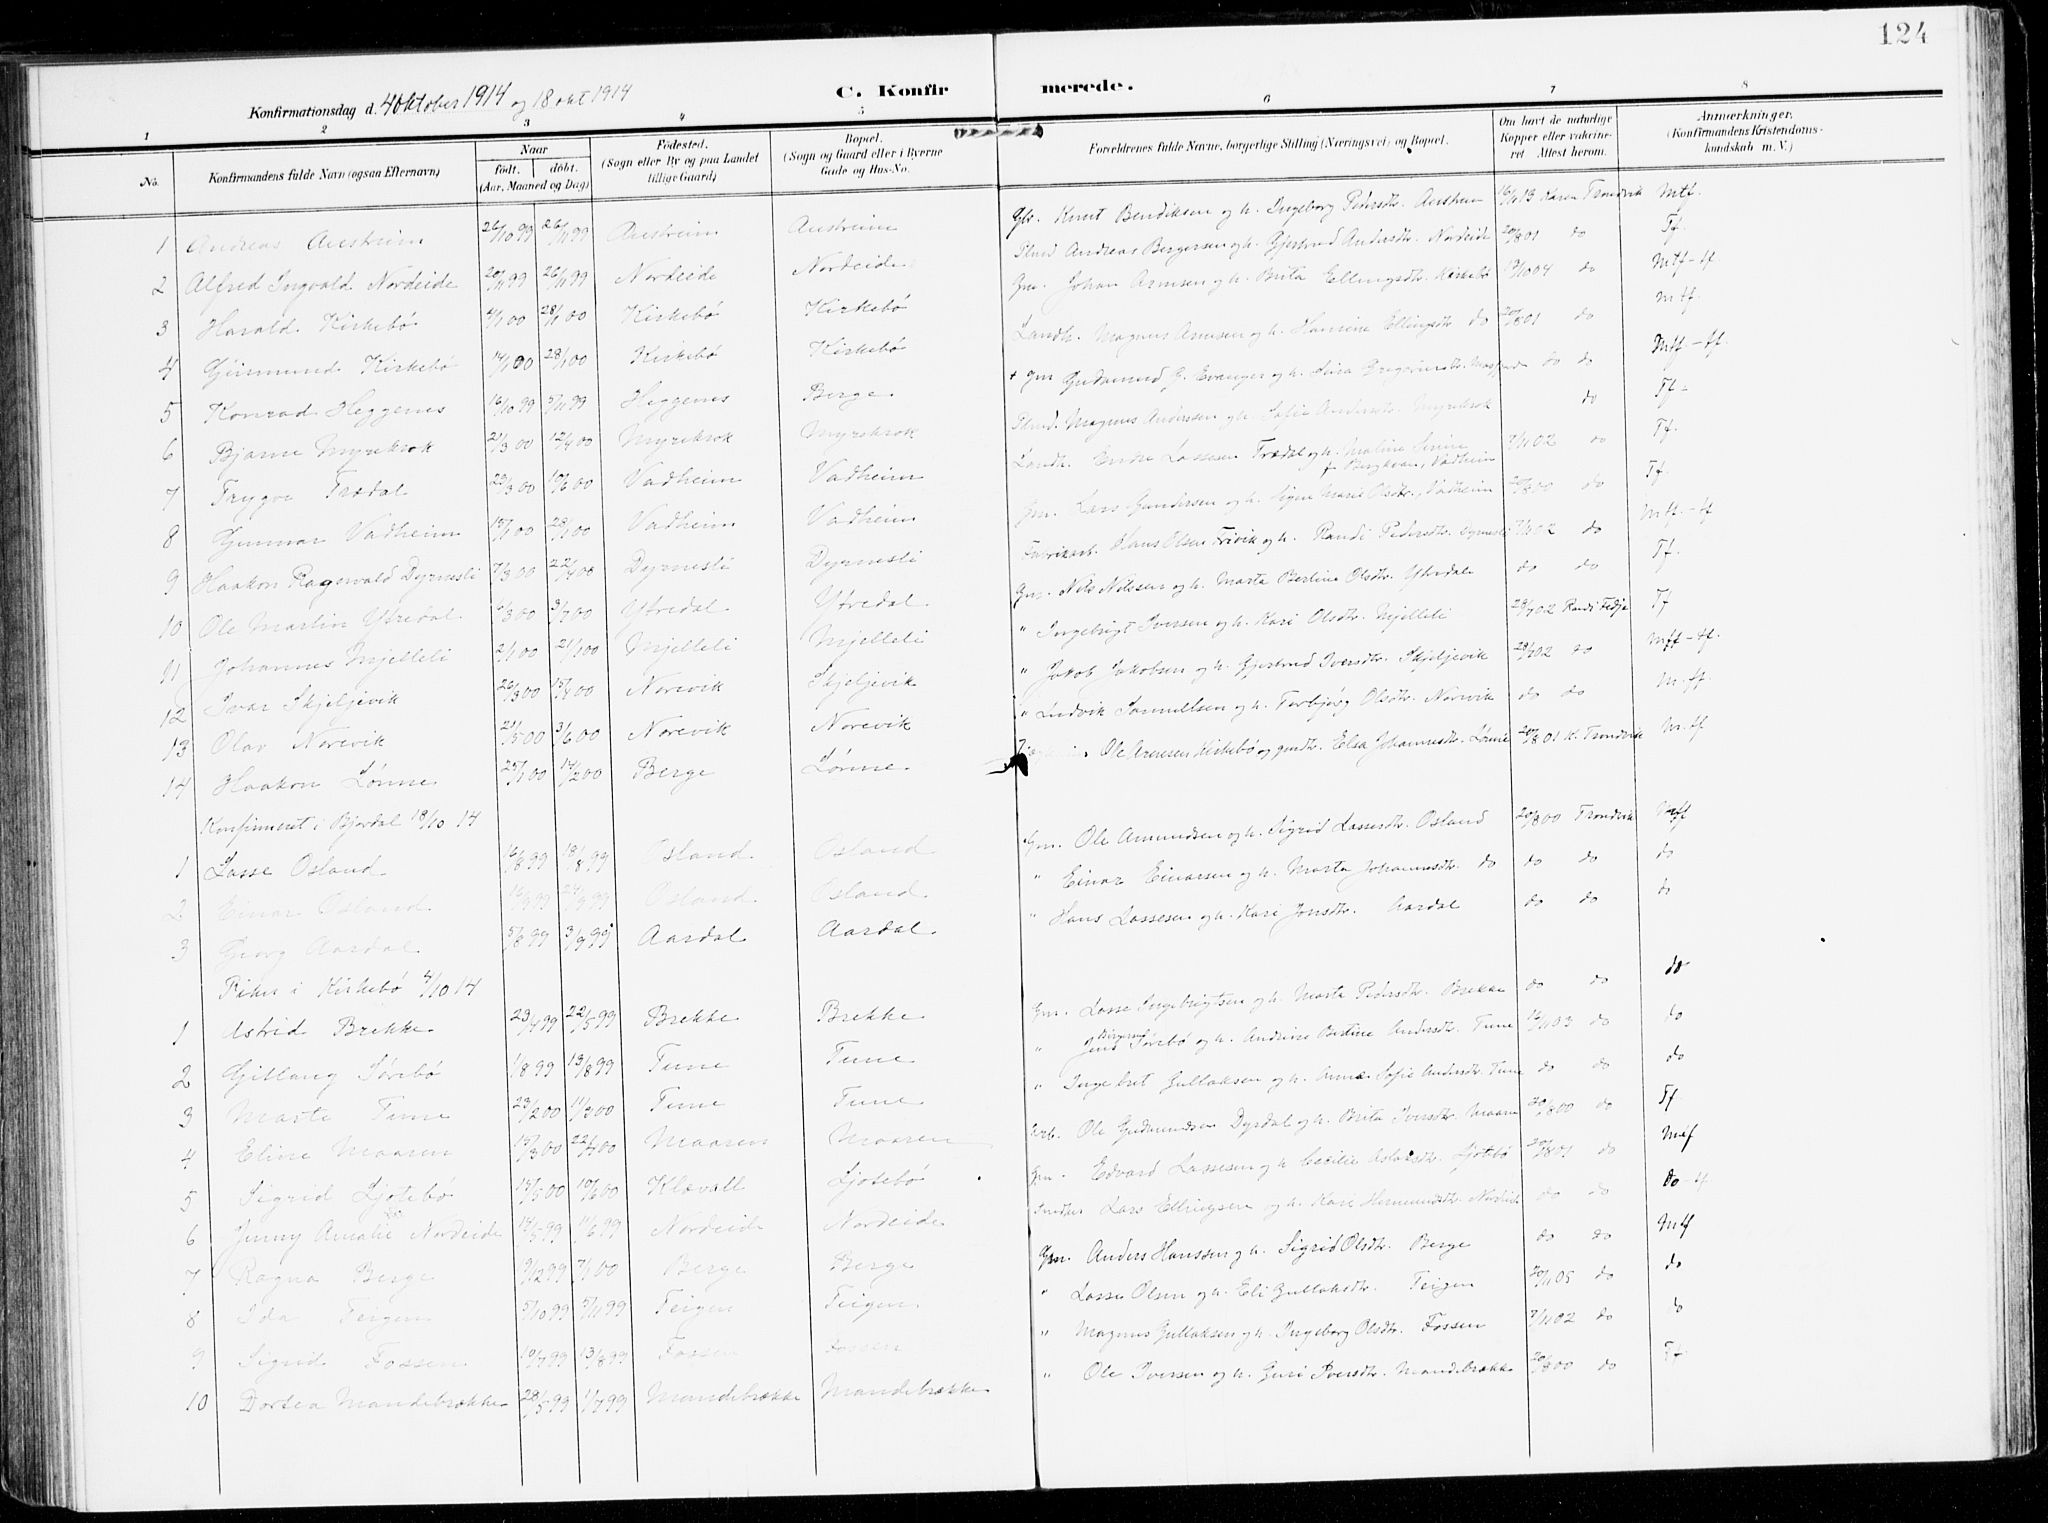 124
Konfirmationsdag d. 4 oktober 1914 og 18 okt 1914 C. Konfirmerede.
1 2 3 4 5 6 7 8
No. Konfirmandens fulde Navn (ogsaa Efternavn) Naar født. døbt. (Aar, Maaned og Dag) Fødested. (Sogn eller By og paa Landet tillige Gaard) Bopæl. (Sogn og Gaard eller i Byerne Gade og Hus-No. Forældrenes fulde Navne, borgerlige Stilling (Næringsvei) og Bopæl. Om havt de naturlige Kopper eller vakcineret. Attest herom. Anmærkninger. (Konfirmandens Kristendomskundskab m. V.)
1 Andreas Austreim 26/10 99 26/11 99 Austreim Austreim Gbr. Knut Bendiksen og h. Ingeborg Pedersdtr. Austreim 16/1 13 Karen Trondvik Mtf.
2 Alfred Ingvald Nordeide 20/11 99 26/11 99 Nordeide Nordeide Plmd Andreas Bergersen og h. Gjertrud Andersdtr. Nordeide 20/8 01 do Tf.
3 Harald Kirkebø 4/1 00 28/1 00 Kirkebø Kirkebø Gm. Johan Arnesen og h. Brita Ellingsdtr. Kirkebø 13/10 04 do Mtf-tf
4 Kirkebø 14/1 00 28/1 00 Kirkebø Kirkebø Landh. Magnus Arnesen og h. Hansine Ellingsdtr. do 20/8 01 do Mtf.
5 Konrad Heggenes 16/10 99 5/11 99 Heggenes Berge + Gm Gudmund G. Evanger og h. do do Mtf-tf.
6 Bjarne Myrekrok 21/3 00 12/4 00 Myrekrok Myrekrok Plmd. Magnus Anderssen og h. Sofie Andersdtr. Myrekrok do Tf-
7 Trygve Trædal 29/3 00 10/6 00 Vadheim Vadheim Landh. Endre Lassesen Trædal og h. Maline Serine Bergheim, Vadheim 7/11 02 do Tf.
8 Gunnar Vadheim 15/1 00 28/1 00 Vadheim Vadheim Gm. Lars Gundersen og h. Signe Marie Olsdtr., Vadheim 20/8 00 do Tf.
9 Haakon Ragnvald Dyrnesli 7/3 00 22/4 00 Dyrnesli Dyrnesli Fabrikarb. Hans Olsen Trivik og h. Randi Pedersdtr. Dyrnesli 7/11 02 do Mtf.-tf
10 Ole Martin Ytredal 6/3 00 3/7 00 Ytredal Ytredal Gm. Nils Nilssen og h. Marta Berline Olsdtr. Ytredale do do Tf.
11 Johannes Mjelleli 2/1 00 21/1 00 Mjelleli Mjelleli " Ingebrigt Iversen og h. Kari Olsdtr. Mjelleli 28/7 02 Randi Fedje Tf
12 Ivar Skjeljevik 26/3 00 15/4 00 Norevik Skjeljevik " Jakob Jakobsen og h. Gjertrud Iversdtr. Skjeljevik 28/7 02 do Mtf-tf.
13 Olav Norevik 21/5 00 3/6 00 Norevik Norevik " Ludvik Samuelsen og h. Torbjørg Olsdtr. Norevik do do M.tf.
14 Haakon Lønne 25/1 00 14/2 00 Berge Lønne Ole Arnesen Kirkebø og Elsa Johannesdtr. Lønne 20/8 01 K. Trondvik M.tf
Konfirmeret i Bjordal 18/10 14
1 Lasse Osland 16/8 99 18/8 99 Osland Osland Gm. Ole Amundsen og h. Sigrid Lassesdtr. Osland 20/8 00 Trondvik Mtf
2 Einar Osland 16/9 99 24/9 99 Osland Osland " Einar Einarsen og h. Marta Johannesdtr. do do do do
3 Georg Aardal 5/8 99 3/9 99 Aardal Aardal " Hans Lassesen og h. Kari Jonsdtr. Aardal do do do
Piker i Kirkebø 4/10 14
1 Astrid Brekke 23/4 99 22/5 99 Brekke Brekke Gm. Lasse Ingebrigtsen og h. Marta Pedersdtr. Brekke do do do
2 Gitlaug Sørebø 1/8 99 13/8 99 Tune Tune " Jens Sørebø og h. Andrine Bertine Andersdtr. Tune 12/11 03 do do
3 Marta Tune 23/2 00 11/3 00 Tune Tune " Ingebret Gullaksen og h. Anna Sofie Andersdtr. Tune do do do
4 Eline Maaren 15/3 00 22/4 00 Maaren Maaren Arb. Ole Gudmundsen Dyrdal og h. Brita Iversdtr. Maaren 20/8 00 do Tf.
5 Sigrid Ljotebø 13/5 00 10/6 00 Klævold Ljotebø Gm. Edvard Lassesen og h. Cecilie Aslaksdtr. Ljotebø 20/8 01 do Mtf
6 Jenny Amalie Nordeide 14/5 99 11/6 99 Nordeide Nordeide Smed Lars Ellingsen og h. Kari Hermundsdtr. Nordeide do do do-tf
7 Ragna Berge 9/12 99 7/1 00 Berge Berge Gm. Anders Hanssen og h. Sigrid Olsdtr. Berge do do Mtf
8 Ida Teigen 5/10 99 5/11 99 Teigen Teigen " Lasse Olsen og h. Eli Gullaksdtr. Teigen 20/11 05 do do
9 Sigrid Fossen 19/7 99 13/8 99 Fossen Fossen " Magnus Gullaksen og h. Ingeborg Olsdtr. Fossen 7/11 02 do do
10 Dortea Mandebrække 28/5 99 1/7 99 Mandebrække Mandebrække " Ole Iversen og h. Guri Iversdtr. Mandebrække 20/8 00 do Tf.